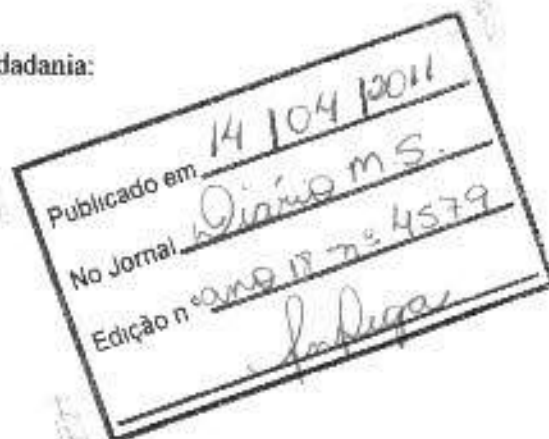 dadania:
Publicado em 14/04/2011
No Jornal Diário MS.
Edição nº ano 18 nº 4579